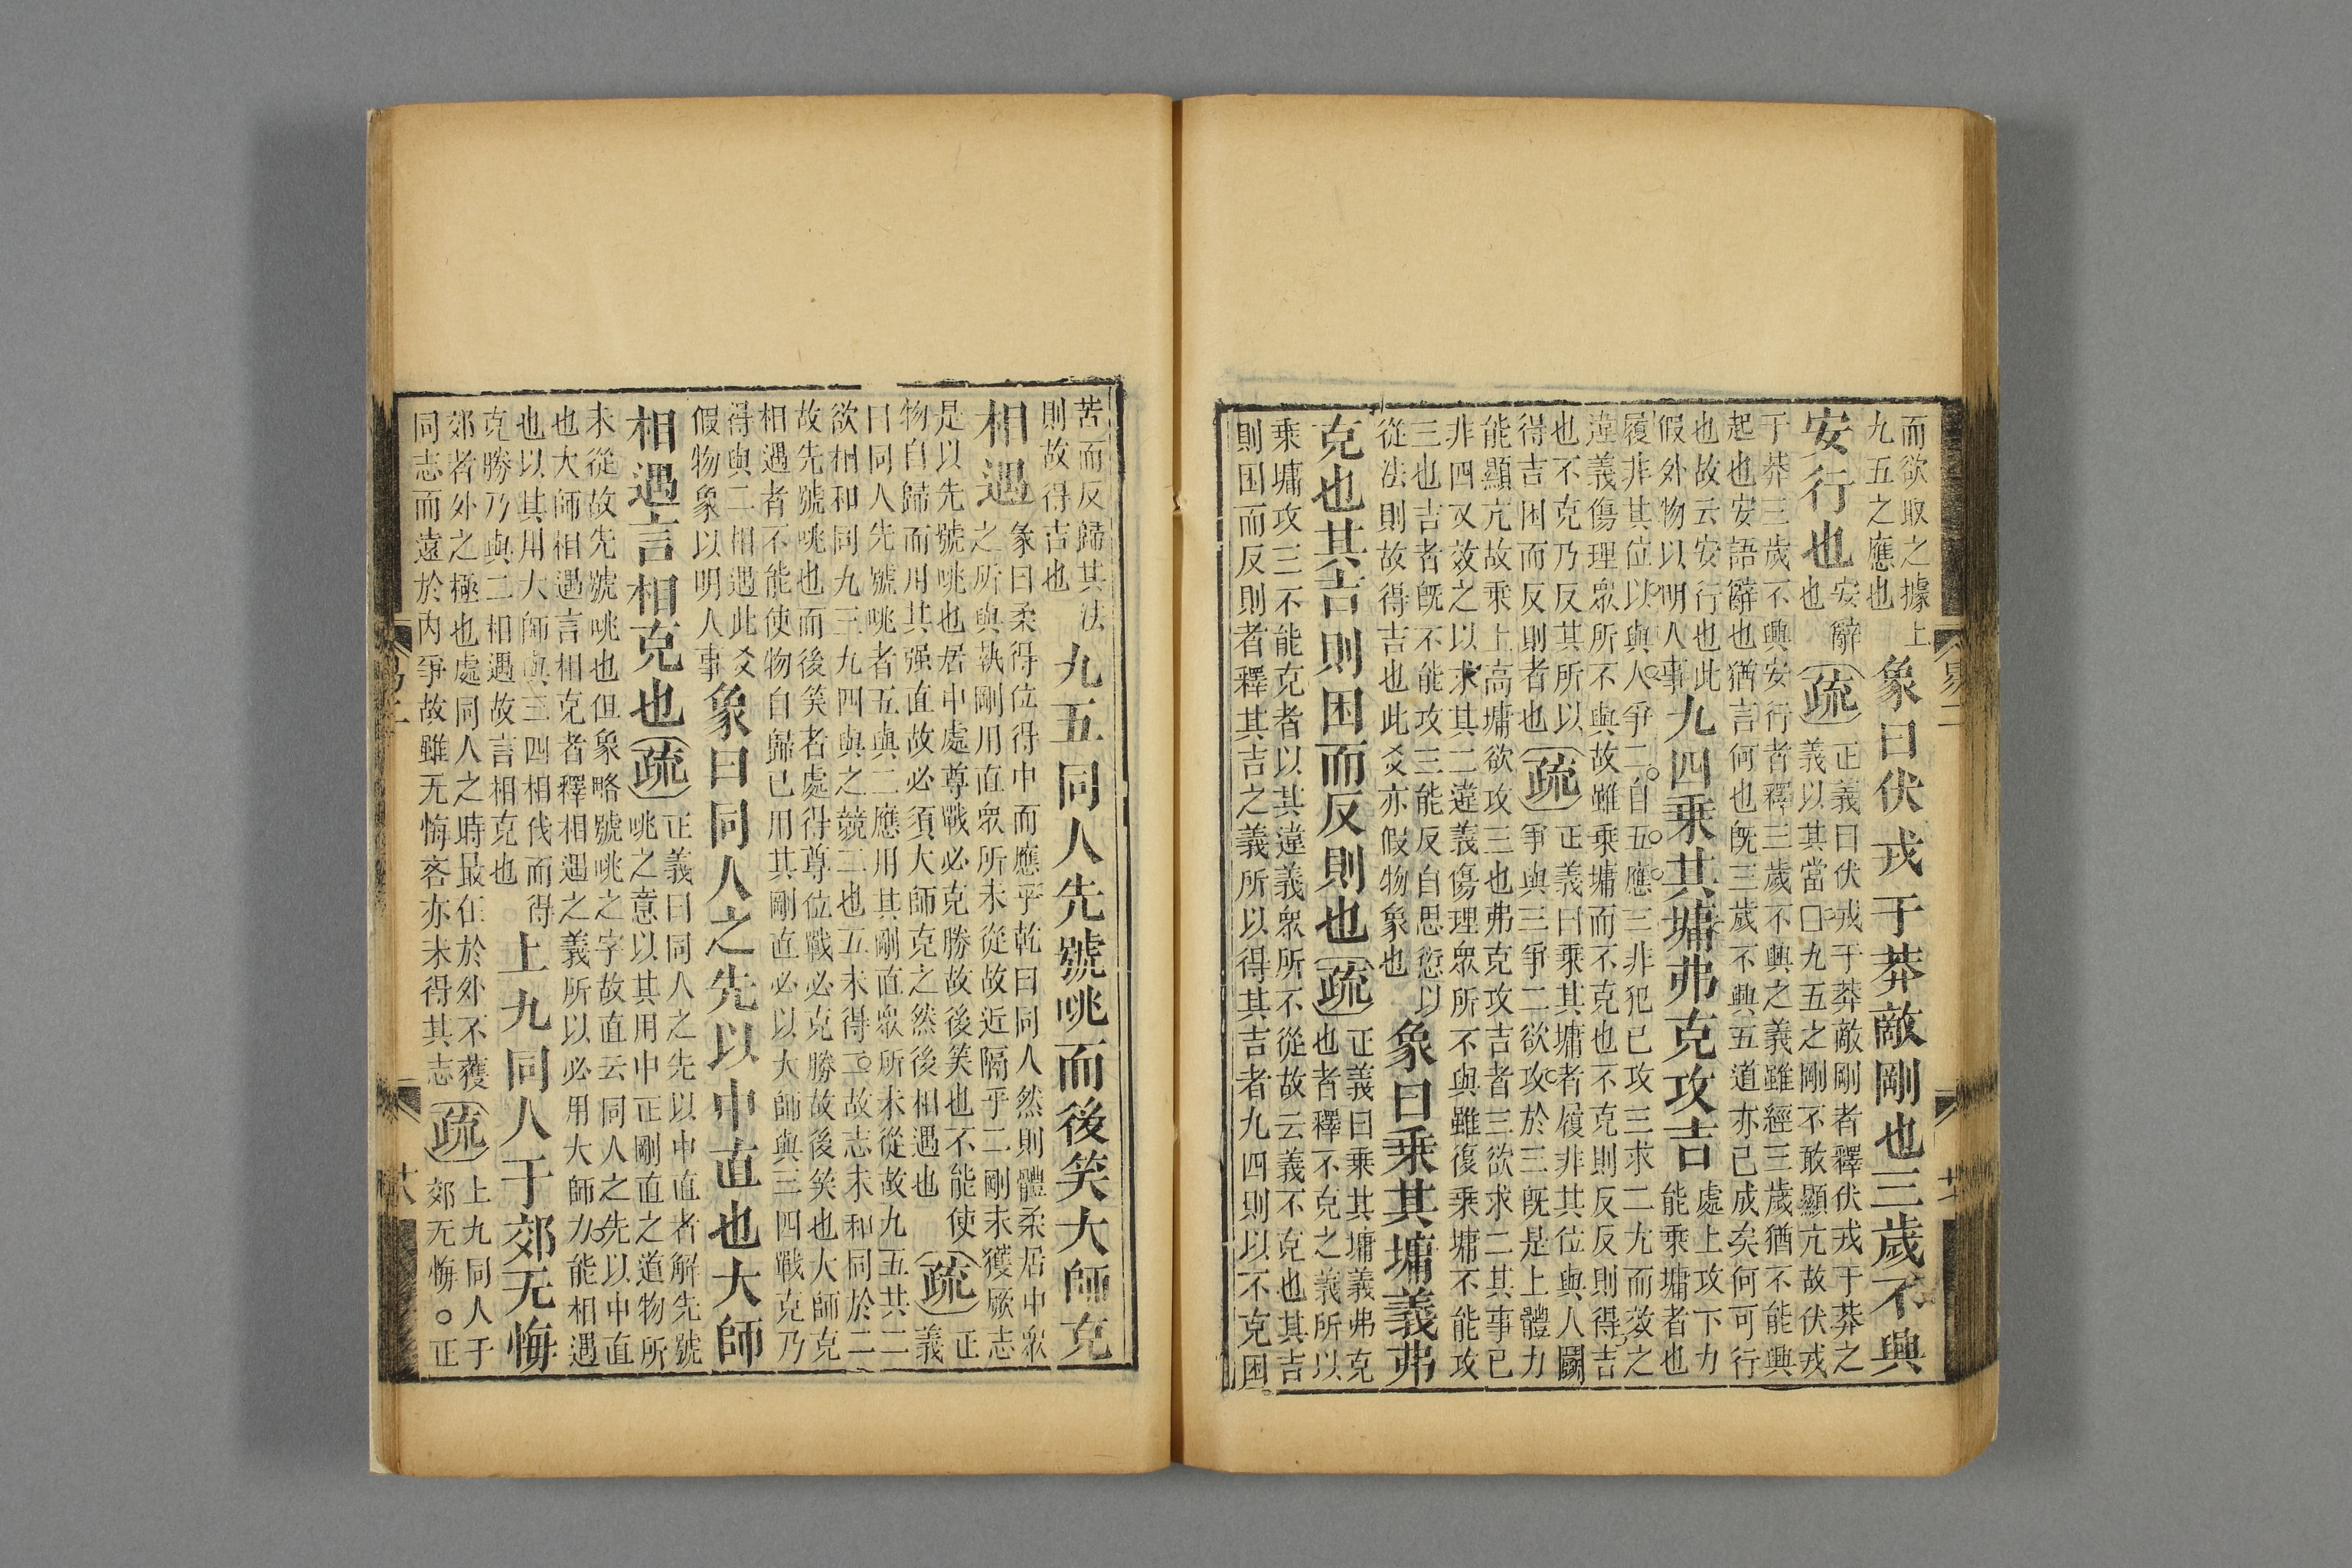 而欲取之據上
九五之應也
象曰伏戎于莽敵剛也三歲不興
安行也
安辭
也
疏
正義曰伏戎于莽敵剛者釋伏戎于莽之
義以其當囗九五之剛不敢顯亢故伏戎
于莽三歲不興安行者釋三歲不興之義雖經三歲猶不能興
起也安語辭也猶言何也旣三歲不興五道亦已成矣何可行
也故云安行也此
假外物以明人事
九四乘其墉弗克攻吉
處上攻下力
能乘墉者也
履非其位以與人爭二自五應三非犯已攻三求二尤而效之
違義傷理眾所不與故雖乘墉而不克也不克則反反則得吉
也不克乃反其所以
得吉困而反則者也
疏
正義曰乘其墉者履非其位與人鬭
爭與三爭二欲攻於三旣是上體力
能顯亢故乘上高墉欲攻三也弗克攻吉者三欲求二其事已
非四又效之以求其二違義傷理眾所不與雖復乘墉不能攻
三也吉者旣不能攻三能反自思愆以
從法則故得吉也此爻亦假物象也
象曰乘其墉義弗
克也其吉則困而反則也
疏
正義曰乘其墉義弗克
也者釋不克之義所以
乘墉攻三不能克者以其違義眾所不從故云義不克也其吉
則困而反則者釋其吉之義所以得其吉者九四則以不克困
苦而反歸其法
則故得吉也
九五同人先號咷而後笑大師克
相遇
象曰柔得位得中而應乎乾曰同人然則體柔居中眾
之所與執剛用直眾所未從故近隔乎二剛未獲厥志
是以先號咷也居中處尊戰必克勝故後笑也不能使
物自歸而用其强直故必須大師克之然後相遇也
疏
正
義
曰同人先號咷者五與二應用其剛直眾所未從故九五共二
欲相和同九三九四與之競二也五未得二故志未和同於二
故先號咷也而後笑者處得尊位戰必克勝故後笑也大師克
相遇者不能使物自歸已用其剛直必以大師與三四戰克乃
得與二相遇此爻
假物象以明人事
象曰同人之先以中直也大師
相遇言相克也
疏
正義曰同人之先以中直者解先號
咷之意以其用中正剛直之道物所
未從故先號咷也但象略號咷之字故直云同人之先以中直
也大師相遇言相克者釋相遇之義所以必用大師乃能相遇
也以其用大師與三四相伐而得
克勝乃與二相遇故言相克也
上九同人于郊无悔
郊者外之極也處同人之時最在於外不獲
同志而遠於內爭故雖无悔吝亦未得其志
疏
上九同人于
郊无悔。正